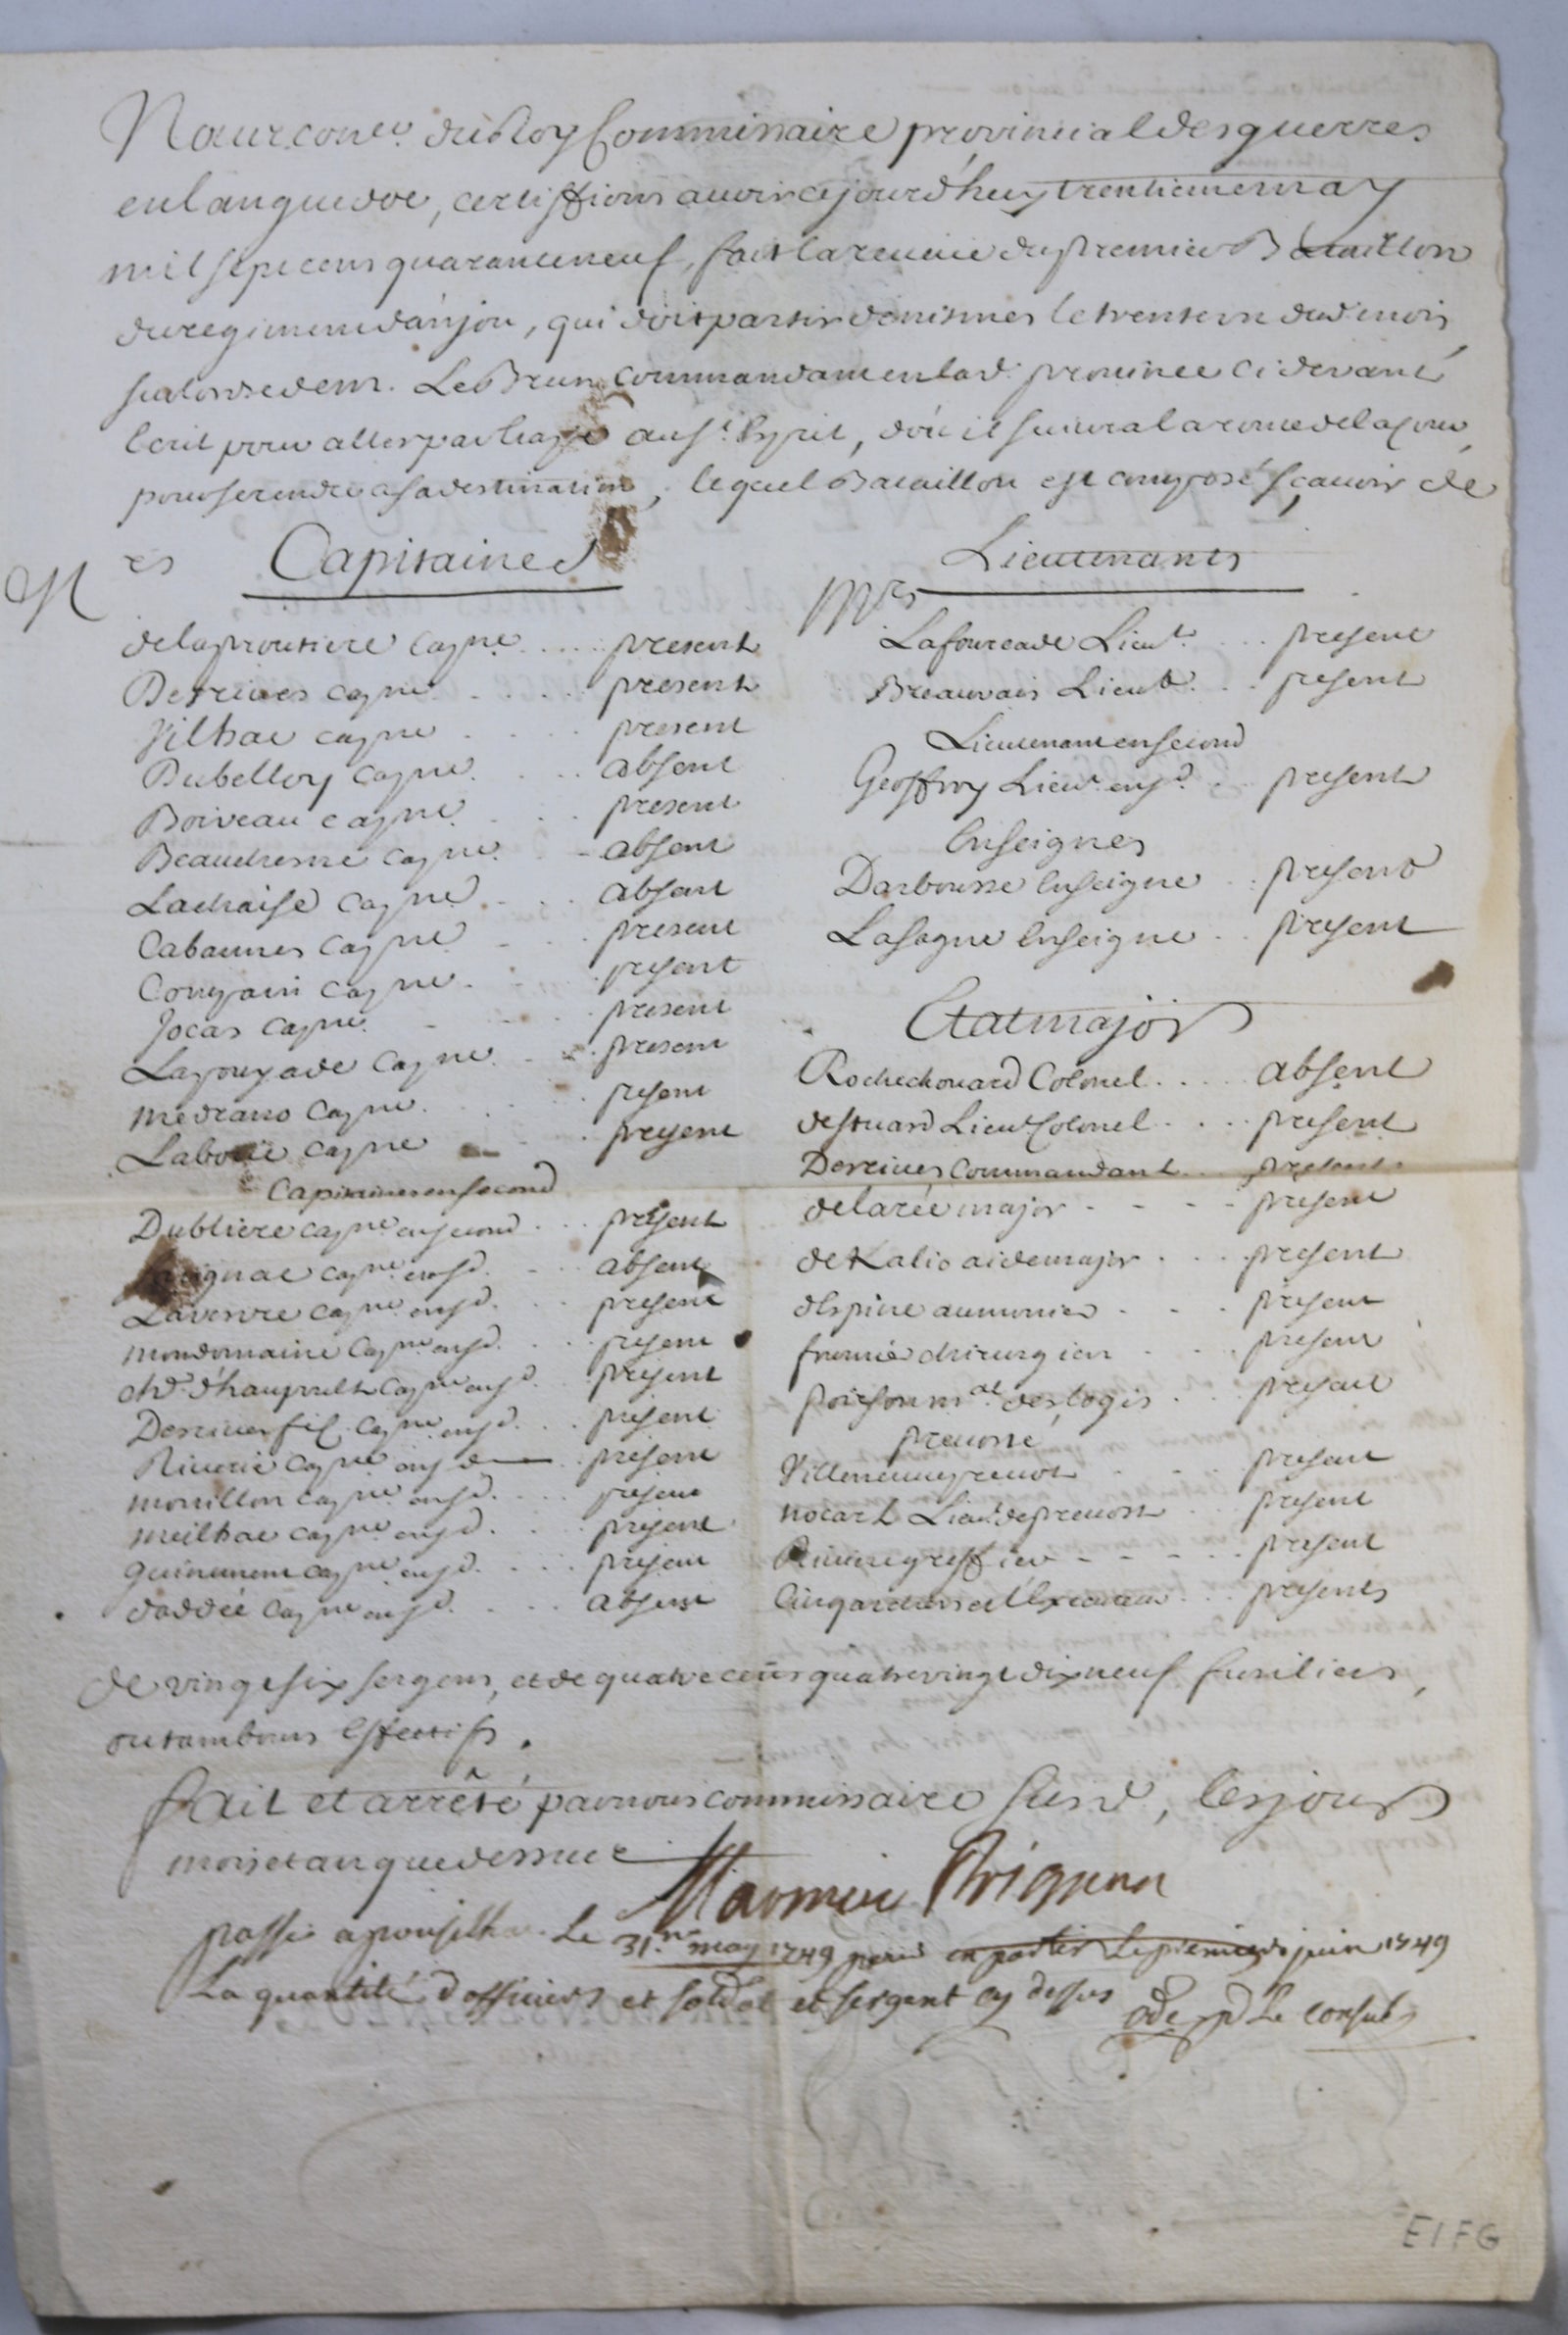 Nous con.er du Roy Commissaire provincial des guerres
en languedoc, certiffions avoir cejourd'huy trentieme may
mil sept cens quarante neuf, fait la reveüe du premier Bataillon
du regiment d'anjou, qui doit partir de nismes le trente un dud. mois
sur l'ordre de m.r LeBrun commandant en lad. province ci devant
écrit pour aller par au S.t Esprit, d'où il suivra la route de la cour,
pour se rendre a sa destination, lequel Bataillon est composé sçavoir de
Mrs Capitaines
delaproutiere Capne present
Desrives capne present
Vilhac capne present
Dubelloy Capne absent
Boiveau capne present
Beauchesne Capne absent
Lachaise Capne absent
Cabannes Capne present
Conpain Capne present
Jocas Capne present
Lapouyade Capne present
medrano Capne present
Laboüe Capne present
Capitaines en second
Dubliere capne en second present
capne en sd. absent
Laverne capne en sd. present
mondomaine Capne en sd. present
chr. d'haupoult Capne en sd. present
Desrives fils Capne en sd. present
Riverie Capne en sd. present
mouillon capne en sd. present
meilhac capne en sd. present
quinement capne en sd. present
daddée Capne en sd. absent
Mrs Lieutenants
Lafourcade Lieut. present
Breauvais Lieut. present
Lieutenant en second
Geoffroy Lieut. en sd. present
Enseignes
Darbousse Enseigne present
Lasagne Enseigne present
Etat major
Rochechouard Colonel absent
destuard Lieut. Colonel present
Desrives Commandant present
delarée major present
deKalio aide major present
despine aumonier present
chirurgien present
poisson mal. des logis present
prevosté
Villeneuve prevot present
nocart Lieut. de prevost present
Riviere greffier present
Cinq archers et l'Executeur presents
de vingt six sergens, et de quatre cens quatre vingt dix neuf fusiliers,
ou tambours effectifs.
fait et arrêté par nous commissaire susd., les jours
mois et an que dessus
Marmier Prignon
passé a pouzilhac Le 31.me may 1749 pour en partir le premier juin 1749
La quantité d'officiers et soldat et sergent cy dessus Le consul
E1FG